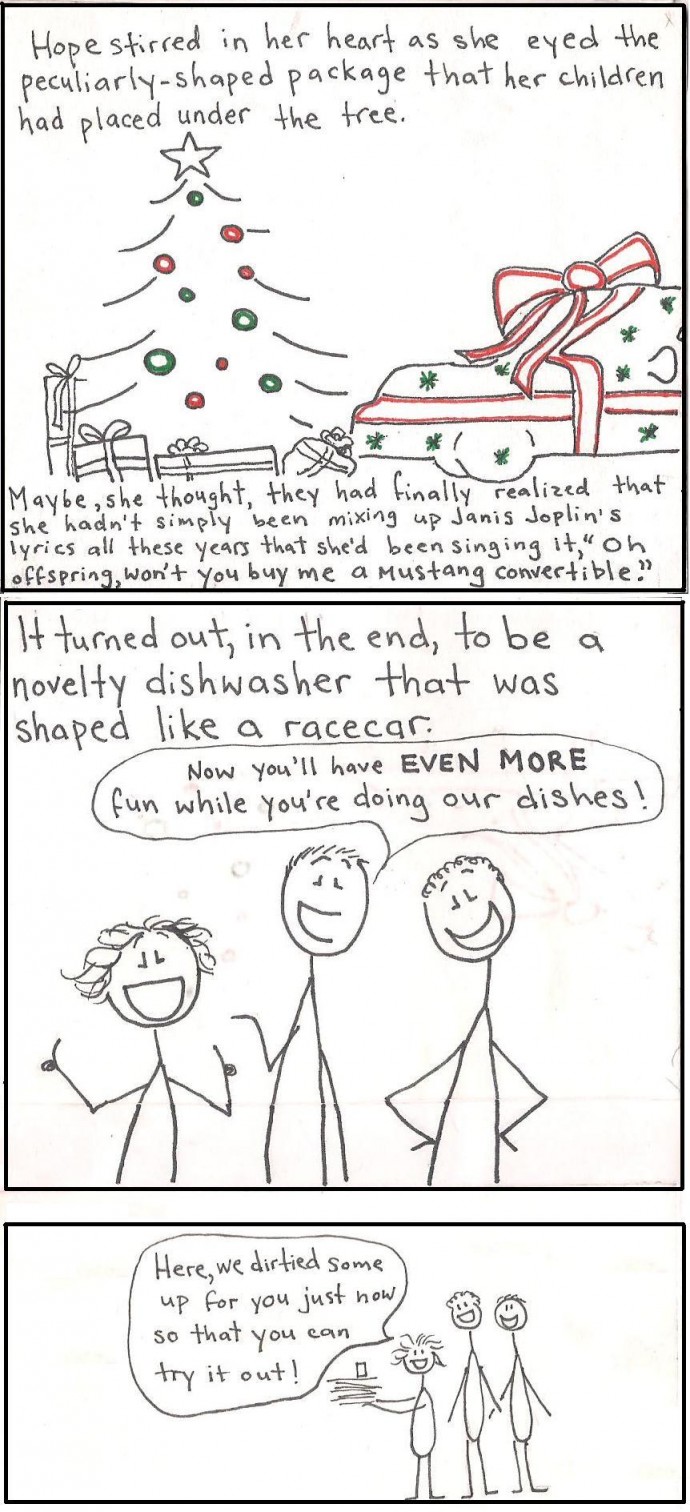 Hope stirred in her heart as she eyed the
peculiarly-shaped package that her children
had placed under the tree.
Maybe, she thought, they had finally realized that
she hadn't simply been mixing up Janis Joplin's
lyrics all these years that she'd been singing it, "Oh
offspring, won't you buy me a Mustang convertible."
It turned out, in the end, to be a
novelty dishwasher that was
shaped like a racecar.
Now you'll have EVEN MORE
fun while you're doing our dishes!
Here, we dirtied some
up for you just now
so that you can
try it out!